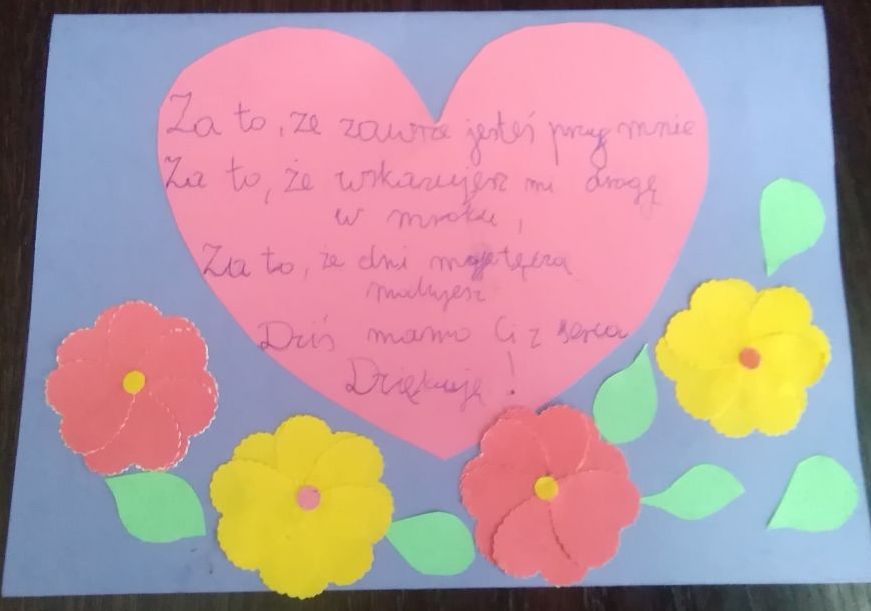 Za to, że zawsze jesteś przy mnie
Za to, że wskazujesz mi drogę
w mroku,
Za to, że dni moje tęczą
malujesz
Dziś mamo Ci z serca
Dziękuję!